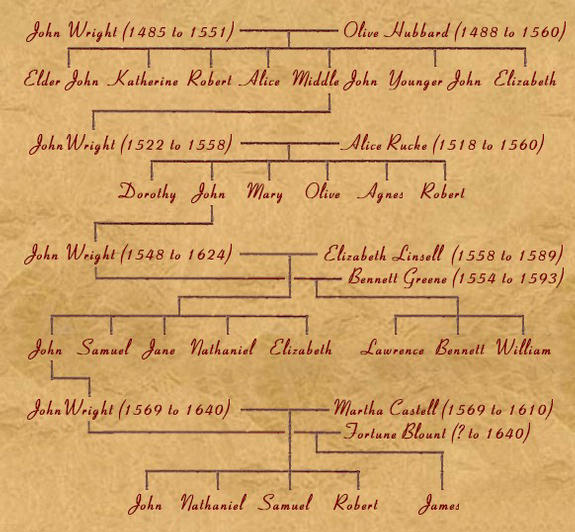 John Wright (1485 to 1551) Olive Hubbard (1488 to 1560)
Elder John Katherine Robert Alice Middle John Younger John Elizabeth
John Wright (1522 to 1558) Alice Rucke (1518 to 1560)
Dorothy John Mary Olive Agnes Robert
John Wright (1548 to 1624) Elizabeth Linsell (1558 to 1589)
Bennett Greene (1554 to 1593)
John Samuel Jane Nathaniel Elizabeth Lawrence Bennett William
John Wright (1569 to 1640) Martha Castell (1569 to 1610)
Fortune Blount (? to 1640)
John Nathaniel Samuel Robert James